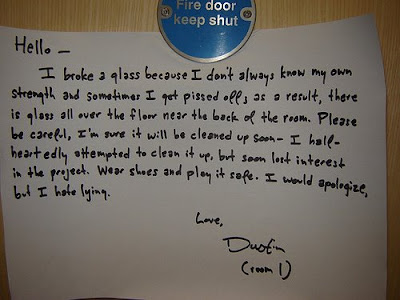 Fire door
keep shut
Hello —
I broke a glass because I don't always know my own
strength and sometimes I get pissed off; as a result, there
is glass all over the floor near the back of the room. Please
be careful, I'm sure it will be cleaned up soon - I half-
heartedly attempted to clean it up, but soon lost interest
in the project. Wear shoes and play it safe. I would apologize,
but I hate lying.
Love,
Dustin
(room 1)